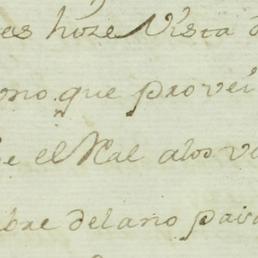 es hize Vista d
ono que provei
e el Real alos v
bre del año pas